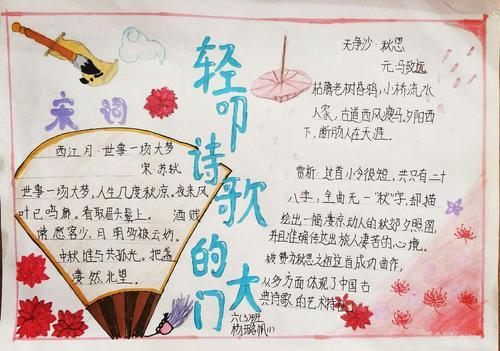 轻叩诗歌的大门
宋词
西江月·世事一场大梦
宋·苏轼
世事一场大梦,人生几度秋凉。夜来风
叶已鸣廊。看取眉头鬓上。 酒贱
常愁客少,月明多被云妨。
中秋谁与共孤光。把盏
凄然北望。
天净沙·秋思
元·马致远
枯藤老树昏鸦,小桥流水
人家,古道西风瘦马,夕阳西
下,断肠人在天涯。
赏析:这首小令很短,共只有二十
八字,全曲无一“秋”字,却描
绘出一幅凄凉动人的秋郊夕照图,
并且准确传达出旅人凄苦的心境。
被赞为秋思之祖这首成功曲作,
从多方面体现了中国古
典诗歌的艺术特征。
六(3)班